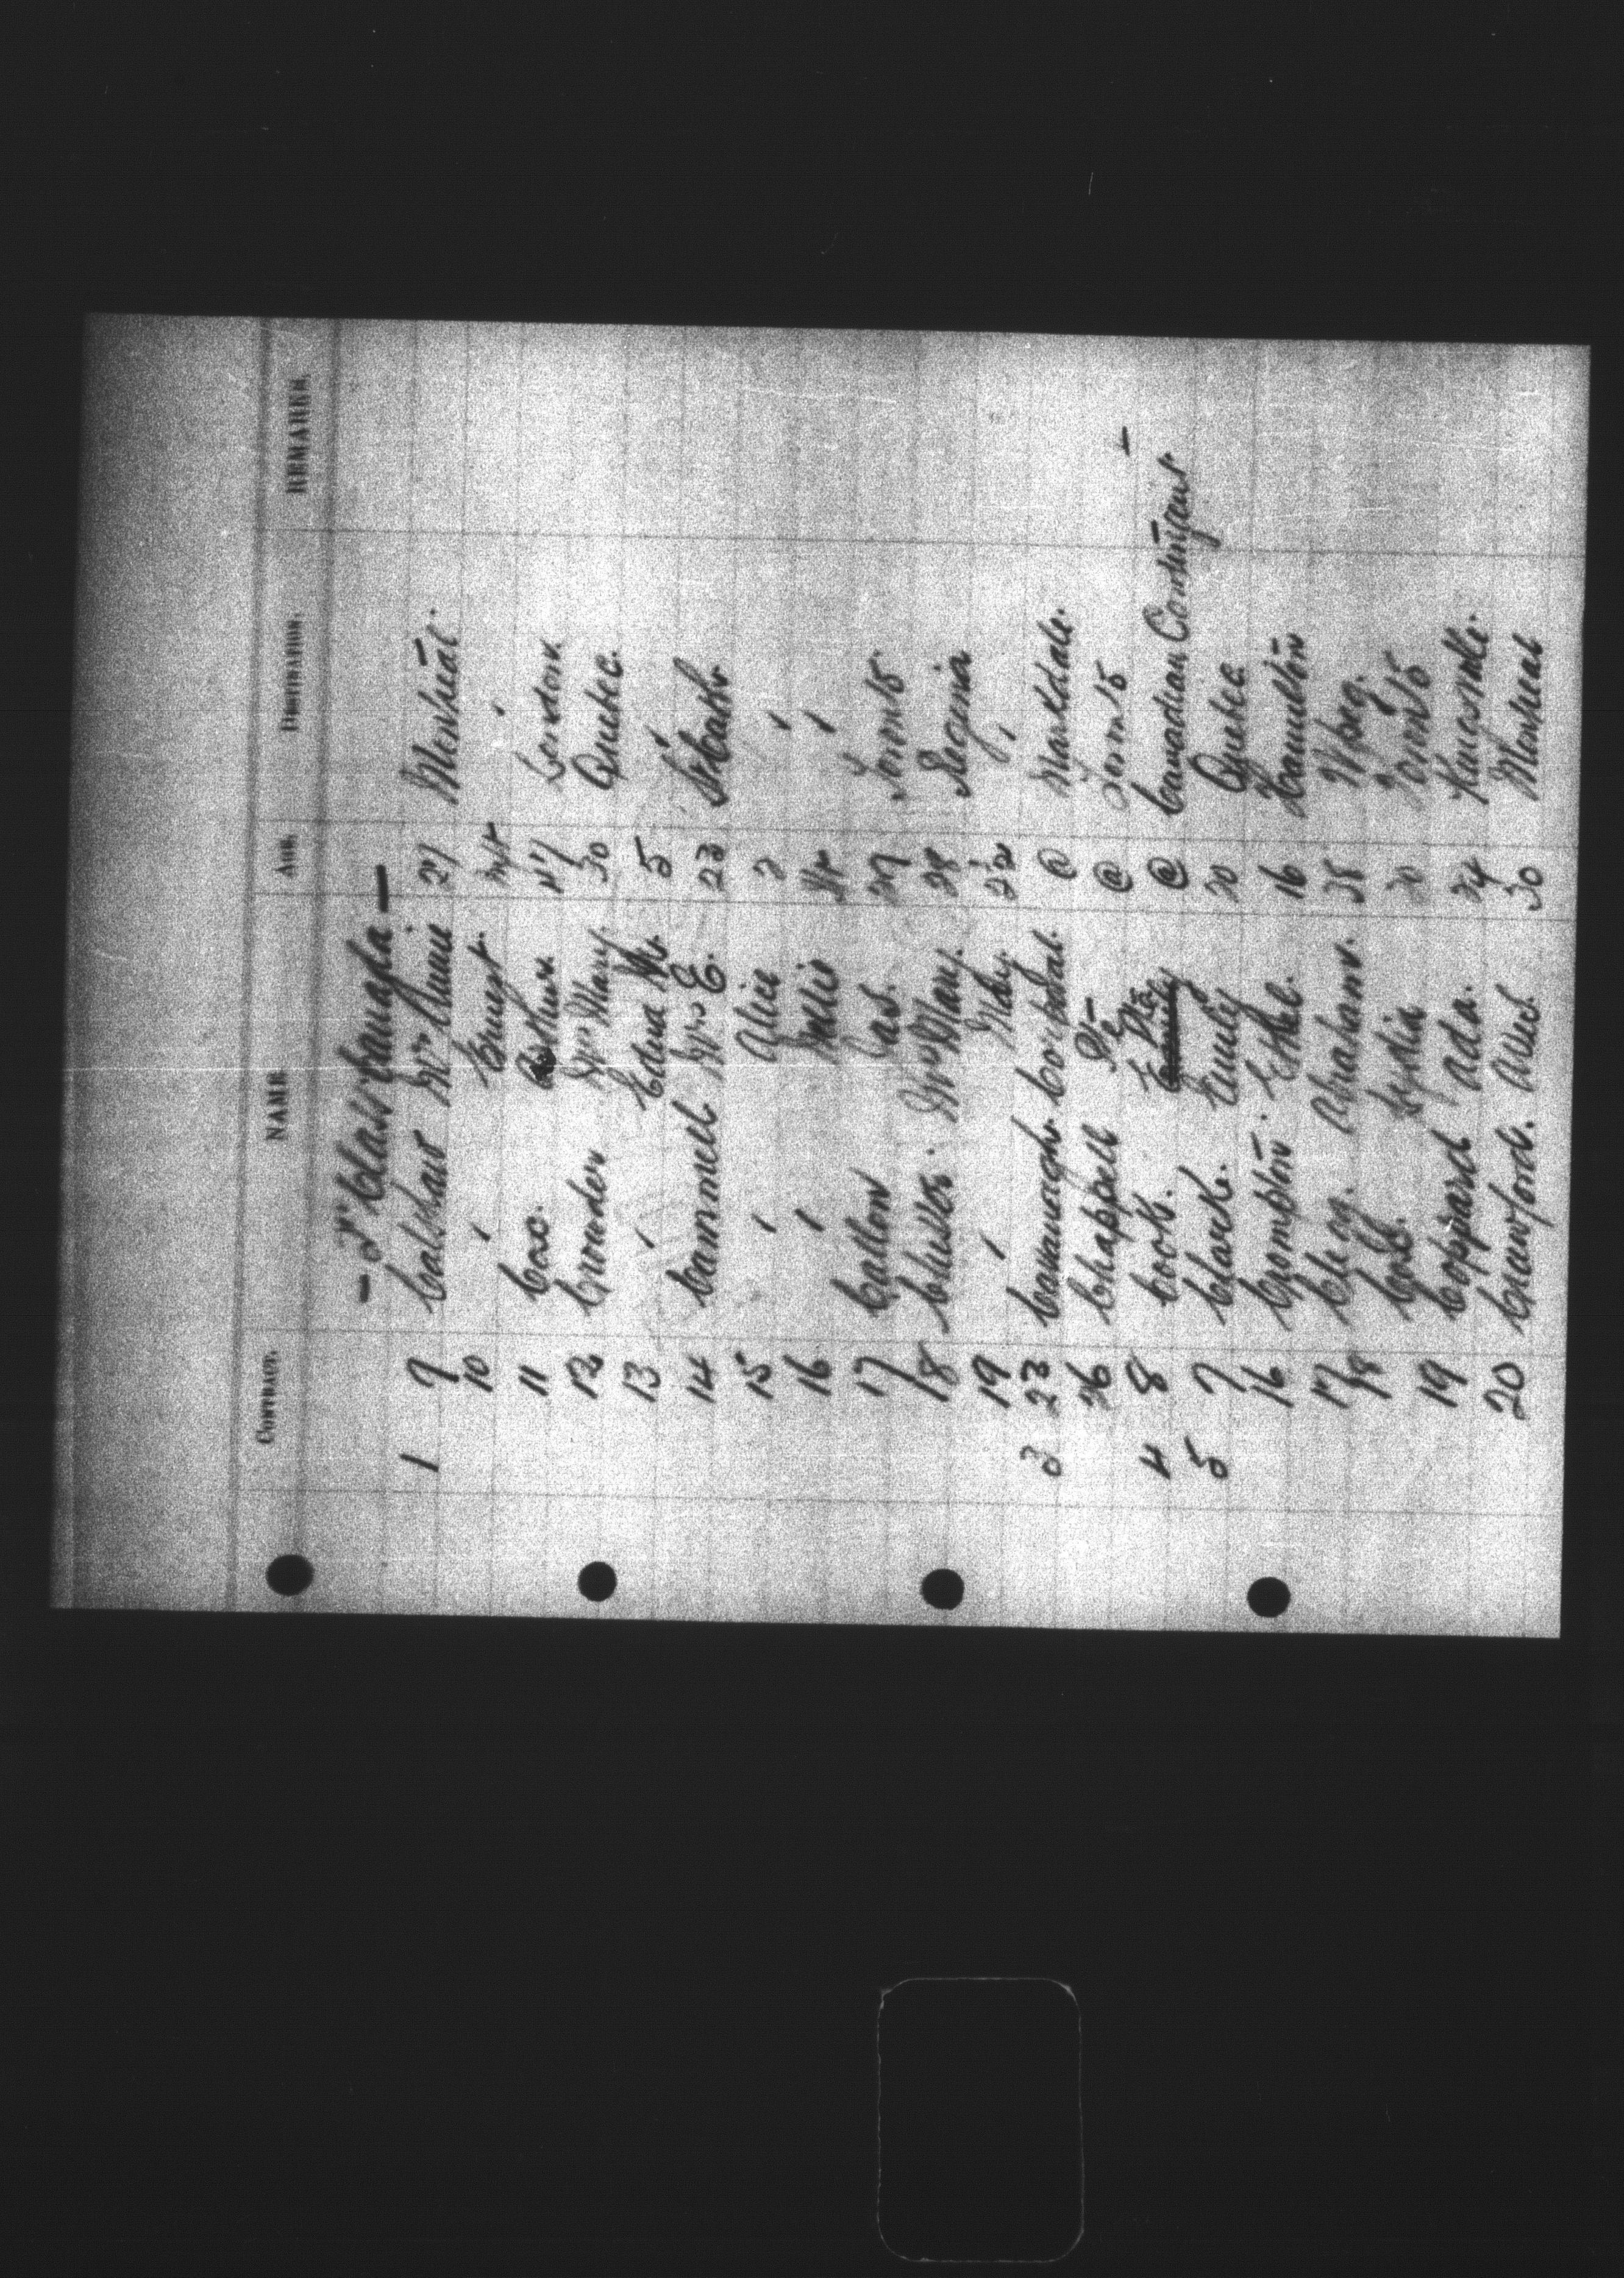 CONTRACT. NAME AGE. DESTINATION. REMARKS.
- 3rd Class Canada -
1 9 Calshaw Mrs Annie 27 Montreal.
10 " Ernest. Inft "
11 Cox. Arthur 47 London
12 Crowder Mrs Mary. 30 Quebec.
13 " Edna M. 5 "
14 Cammell Mrs E. 23 Sask.
15 " Alice 3 "
16 " Nellie "
17 Callow Jas. 27 Toronto.
18 Mrs Mary. 28 Regina
19 " May. "
3 23 Cavanagh Corporal. @ Markdale.
26 Chappell Pte @ Toronto
4 8 Cook. Pte @ Canadian Contingent -
5 7 Clark. Emily 30 Quebec
16 Crompton. Ethel. 16 Hamilton
17 Abraham. 38 Wpeg.
18 Lydia 30 Toronto
19 Coppard Ada. 24
20 Crawford. 30 Montreal